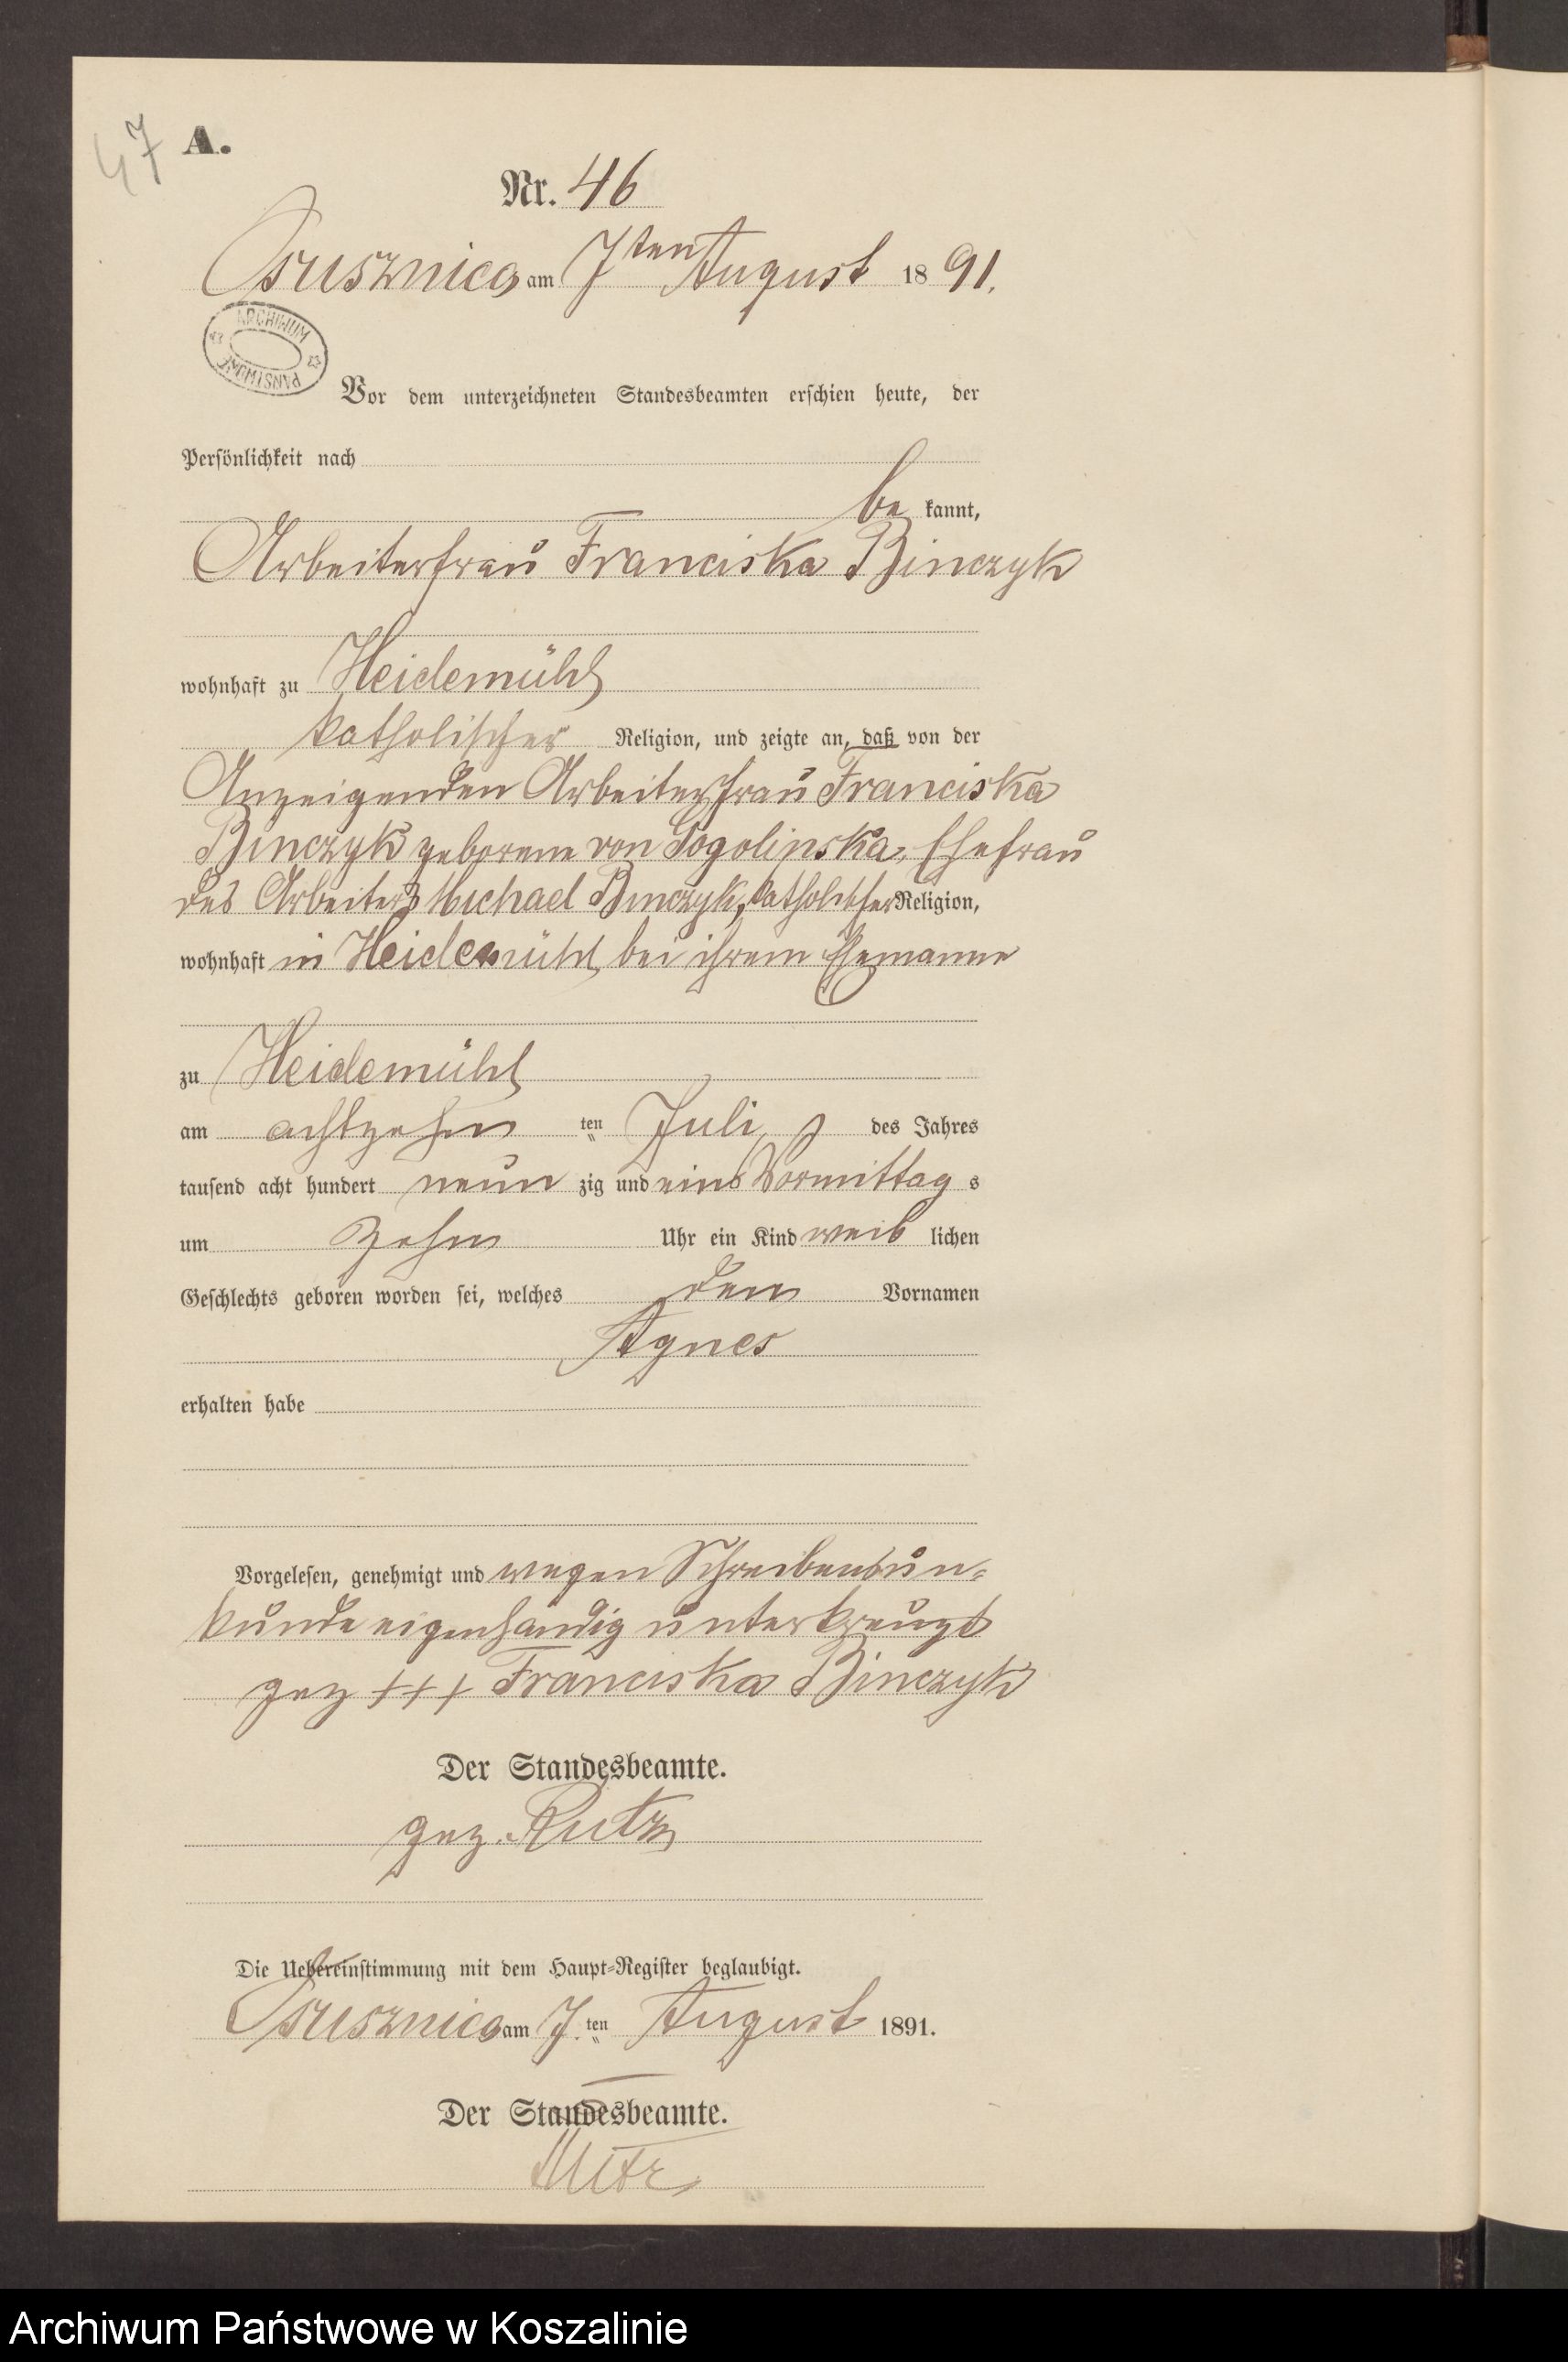 47 A.
Nr. 46
Ossusznica am 7ten August 1891.
ARCHIWUM PAŃSTWOWE
Vor dem unterzeichneten Standesbeamten erschien heute, der
Persönlichkeit nach
be kannt,
Arbeiterfrau Franciska Binczyk
wohnhaft zu Heidemühl
katholischer Religion, und zeigte an, daß von der
Anzeigenden Arbeiterfrau Franciska
Binczyk geborene von Gogolinska, Ehefrau
des Arbeiters Michael Binczyk, katholischer Religion,
wohnhaft in Heidemühl bei ihrem Ehemanne
zu Heidemühl
am achtzehn ten Juli des Jahres
tausend acht hundert neun zig und eins Vormittag s
um zehn Uhr ein Kind weib lichen
Geschlechts geboren worden sei, welches den Vornamen
Agnes
erhalten habe
Vorgelesen, genehmigt und wegen Schreibensun-
kunde eigenhändig unterkreuzt
gez +++ Franciska Binczyk
Der Standesbeamte.
gez. Rutz
Die Uebereinstimmung mit dem Haupt-Register beglaubigt.
Ossusznica am 7. ten August 1891.
Der Standesbeamte.
Rutz
Archiwum Państwowe w Koszalinie